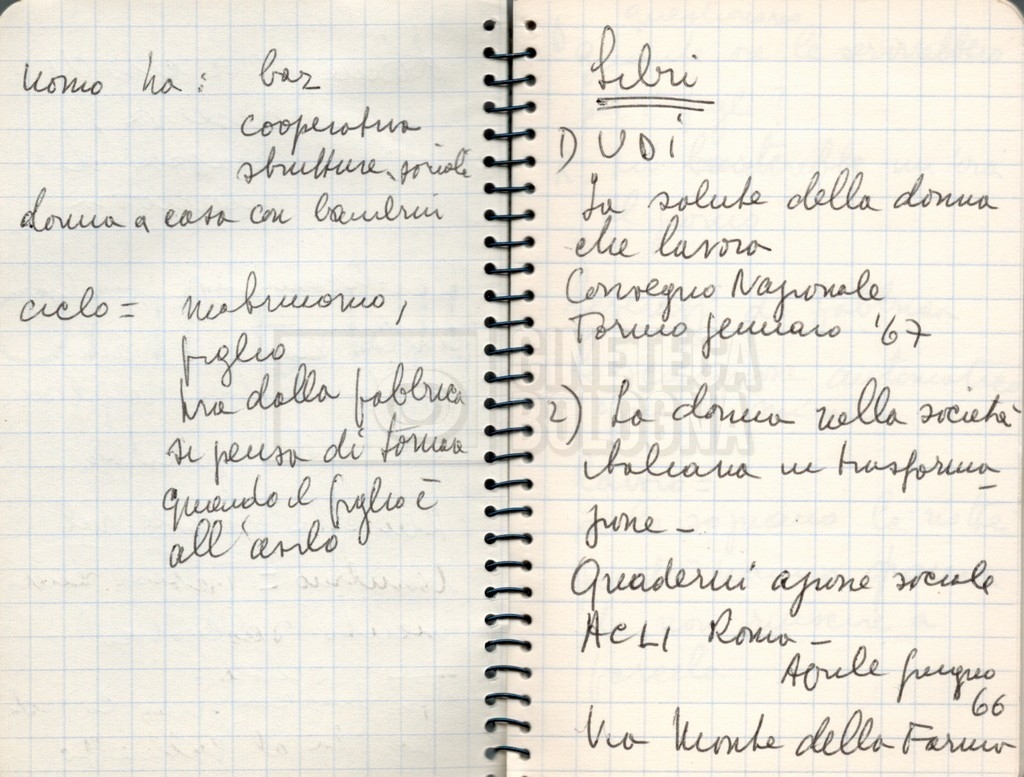 uomo ha: bar
cooperativa
strutture sociali
donna a casa con bambini
ciclo = matrimonio,
figlio
via dalla fabbrica
si pensa di torna
quando il figlio è
all'asilo
Libri
1) UDI
La salute della donna
che lavora
Convegno Nazionale
Torino gennaio '67
2) La donna nella società
italiana in trasforma-
zione -
Quaderni azione sociale
ACLI Roma -
Aprile giugno
66
Via Monte della Farina
CINETECA
BOLOGNA